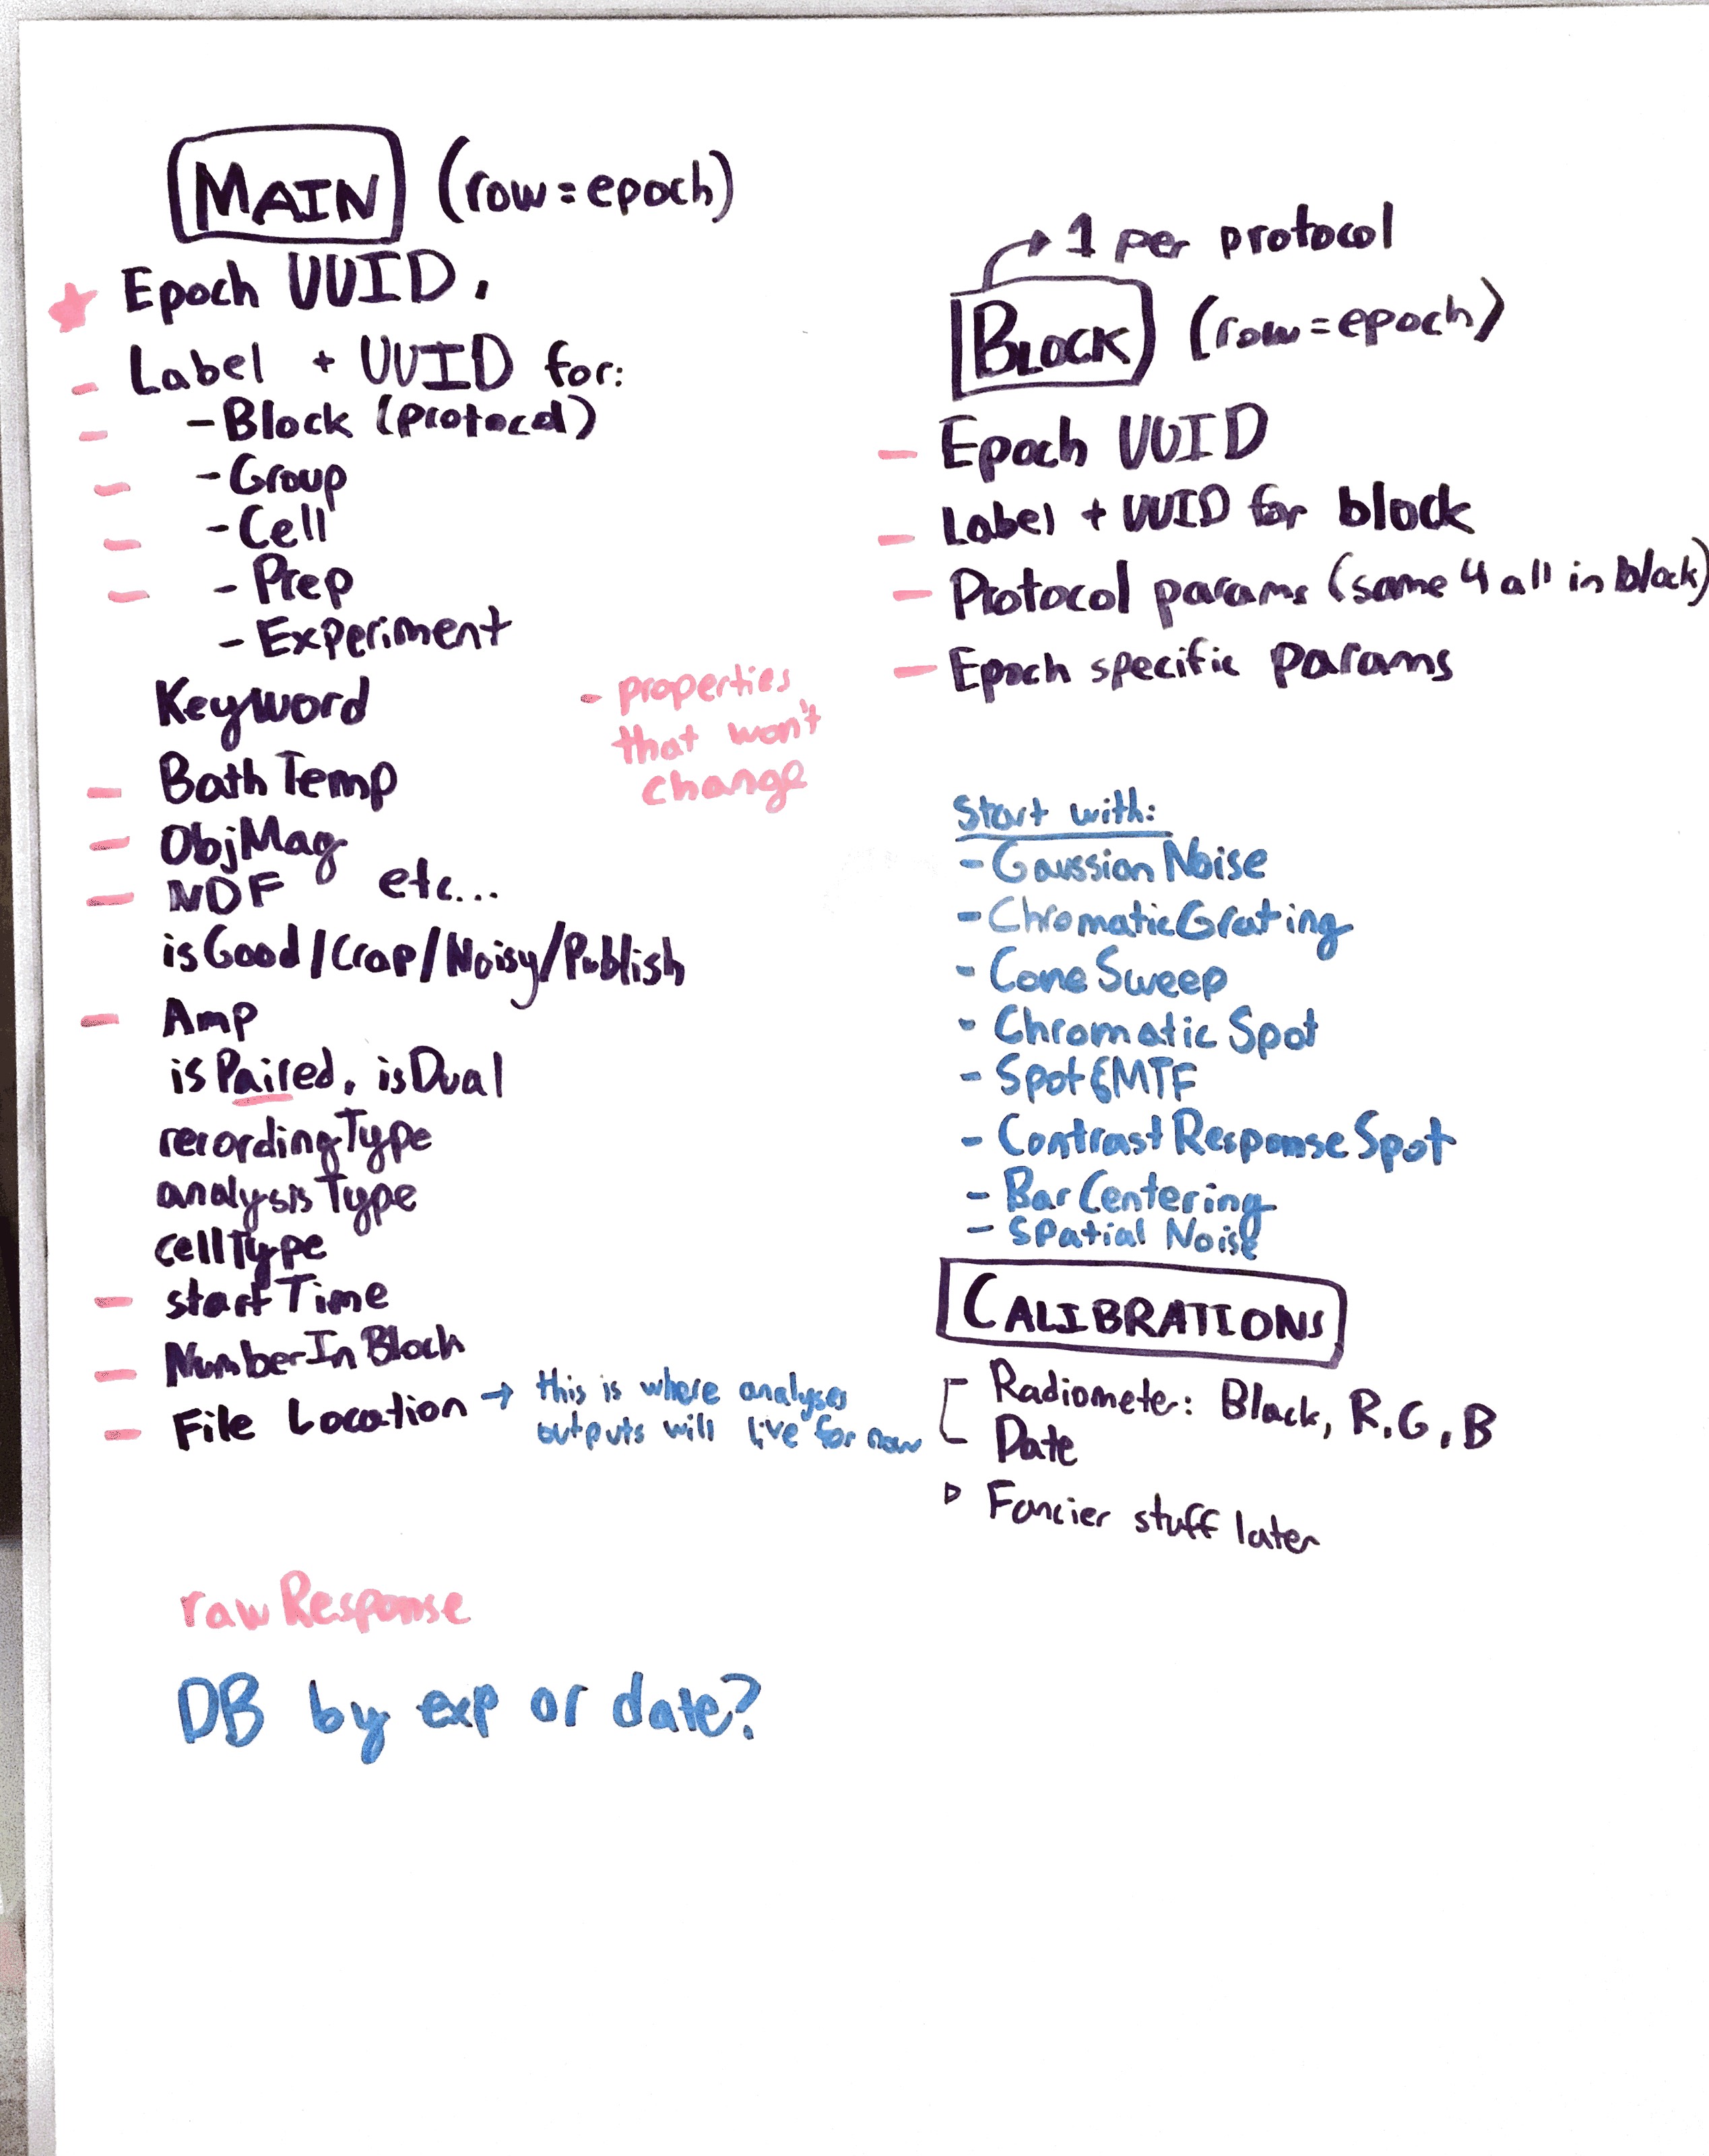 MAIN (row=epoch)
Epoch UUID.
Label + UUID for:
- Block (protocol)
- Group
- Cell
- Prep
- Experiment
Keyword
- properties
that won't
change
Bath Temp
ObjMag
NDF etc...
isGood/Crap/Noisy/Publish
Amp
isPaired, isDual
recordingType
analysisType
cellType
startTime
NumberInBlock
File Location → this is where analyses
outputs will live for now
rawResponse
DB by exp or date?
→ 1 per protocol
BLOCK (row=epoch)
- Epoch UUID
- Label + UUID for block
- Protocol params (same 4 all in block)
- Epoch specific params
Start with:
- Gaussian Noise
- ChromaticGrating
- Cone Sweep
- Chromatic Spot
- Spot SMTF
- Contrast Response Spot
- Bar Centering
- Spatial Noise
CALIBRATIONS
Radiometer: Black, R, G, B
Date
▷ Fancier stuff later